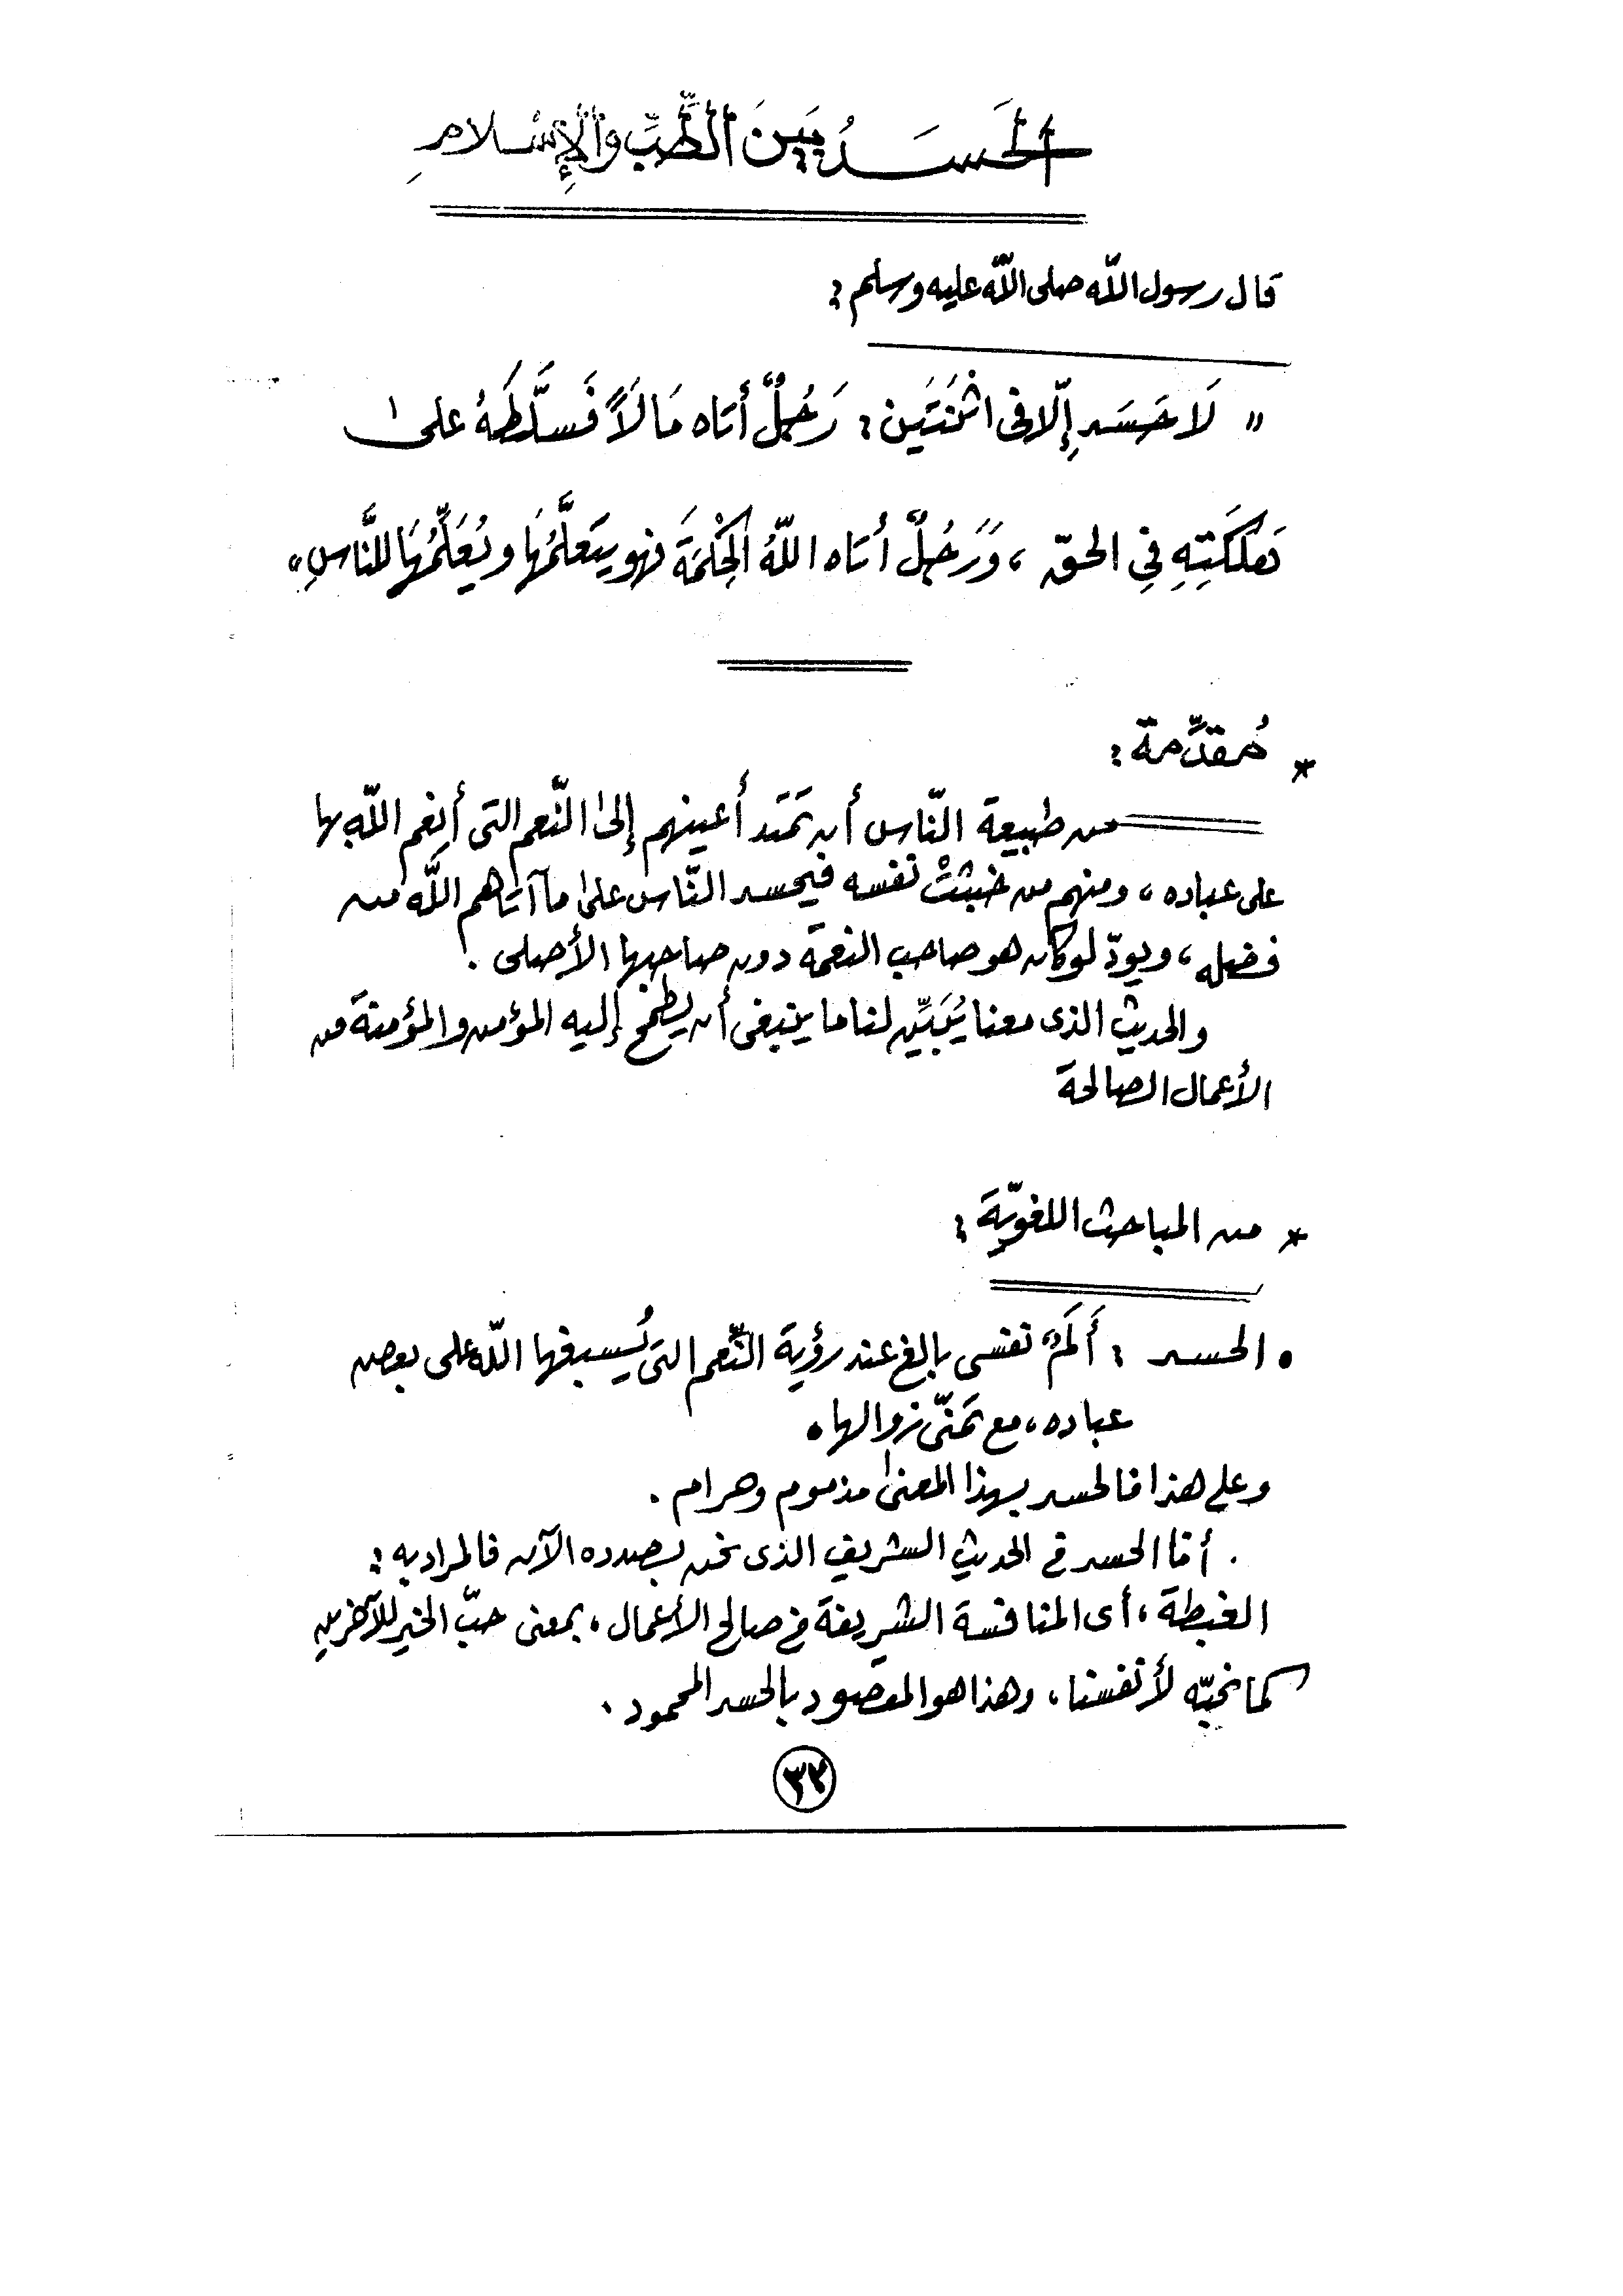 الحَسَدُ بَينَ الطِّبِّ والإِسْلامِ
قال رسول اللّه صلى اللّه عليه وسلم :
" لَا حَسَد إِلّا فى اثْنَتَين : رَجُلٌ أتاه مَالاً فَسَلَّطَهُ على
هَلَكَتِهِ فِي الحقّ ، وَرَجُلٌ أتاه اللّهُ الحِكْمَةَ فهو يتعلَّمُهَا ويُعَلِّمُهَا للنَّاسِ "
* مُقدِّمة :
من طبيعة النّاس أن تمَتد أعينهم إلى النّعم التى أنعم اللّه بها
على عباده ، ومنهم من خبثتْ نفسه فيحسد النّاس على ما آتاهم اللَّه من
فضله ، ويودّ لو كان هو صاحب النعمة دون صاحبها الأصلى .
والحديث الذى معنا يُبَيِّن لنا ما ينبغى أن يطمح إليه المؤمن والمؤمنة من
الأعمال الصالحة
* من المباحث اللغويّة :
• الحسد : أَلَمٌ نفسى بالغ عند رؤية النِّعم التى يُسبغها اللّه على بعض
عباده ، مع تمنّى زوالها .
وعلى هذا فالحسد بهذا المعنى مذموم وحرام .
. أمّا الحسد فى الحديث الشريف الذى نحن بصدده الآن فالمراد به :
الغبطة ، أى المنافسة الشريفة فى صالح الأعمال ، بمعنى حبّ الخير للآخرين
كما نحبّه لأنفسنا ، وهذا هو المقصود بالحسد المحمود .
٣٢